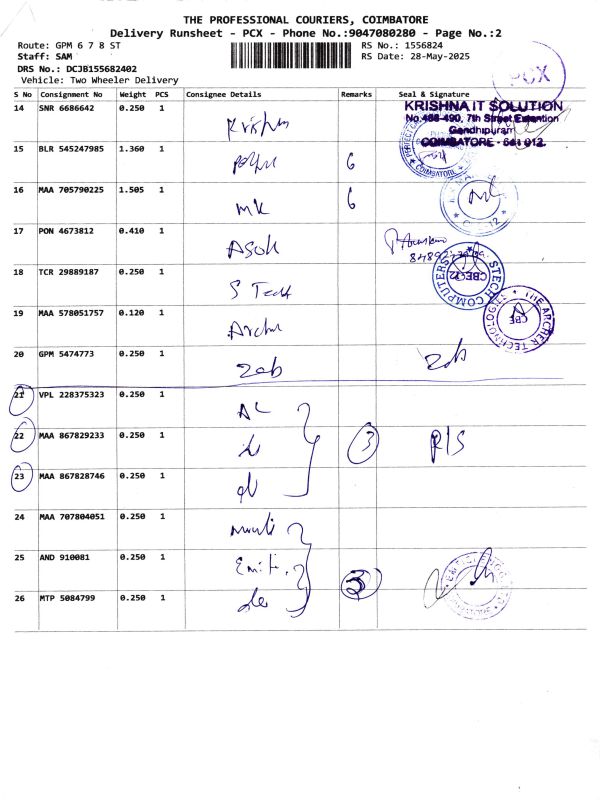 THE PROFESSIONAL COURIERS, COIMBATORE
Delivery Runsheet - PCX - Phone No.:9047080280 - Page No.:2
Route: GPM 6 7 8 ST
RS No.: 1556824
Staff: SAM
RS Date: 28-May-2025
DRS No.: DCJB155682402
Vehicle: Two Wheeler Delivery
PCX
S No Consignment No Weight PCS Consignee Details Remarks Seal & Signature
14 SNR 6686642 0.250 1
KRISHNA IT SOLUTION
No.488-490, 7th Street Extention
Gandhipuram
COIMBATORE - 641 012.
15 BLR 545247985 1.360 1 6
COIMBATORE
16 MAA 705790225 1.505 1 MK 6
17 PON 4673812 0.410 1 ASOK
18 TCR 29889187 0.250 1 S Tech
STECH COMPUTERS
CBE-12
19 MAA 578051757 0.120 1 Archer
THE ARCHER TECHNOLOGIES
CBE
20 GPM 5474773 0.250 1 Zeb Zeb
21 VPL 228375323 0.250 1
22 MAA 867829233 0.250 1 3 R/S
23 MAA 867828746 0.250 1
24 MAA 707804051 0.250 1
25 AND 910081 0.250 1
26 MTP 5084799 0.250 1 3